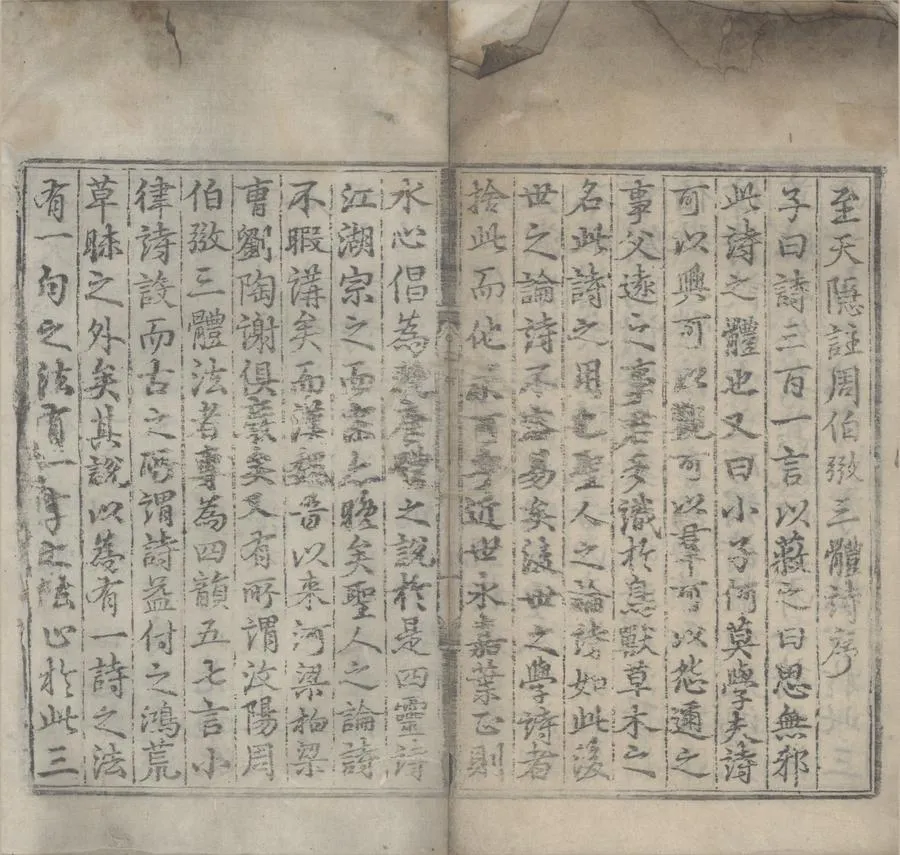 至天隱註周伯弜三體詩序
子曰詩三百一言以蔽之曰思無邪
此詩之體也又曰小子何莫學夫詩
可以興可以觀可以羣可以怨邇之
事父遠之事君多識於鳥獸草木之
名此詩之用也聖人之論詩如此後
世之論詩不容易矣後世之學詩者
捨此而他求可乎近世永嘉葉正則
水心倡為晚唐體之說於是四靈詩
江湖宗之而宗之晚矣聖人之論詩
不暇講矣而漢魏晉以来河梁柏梁
曹劉陶謝俱廢矣又有所謂汶陽周
伯弜三體法者專為四韻五七言小
律詩設而古之所謂詩益付之鴻荒
草昧之外矣其說以為有一詩之法
有一句之法有一字之法止於此三